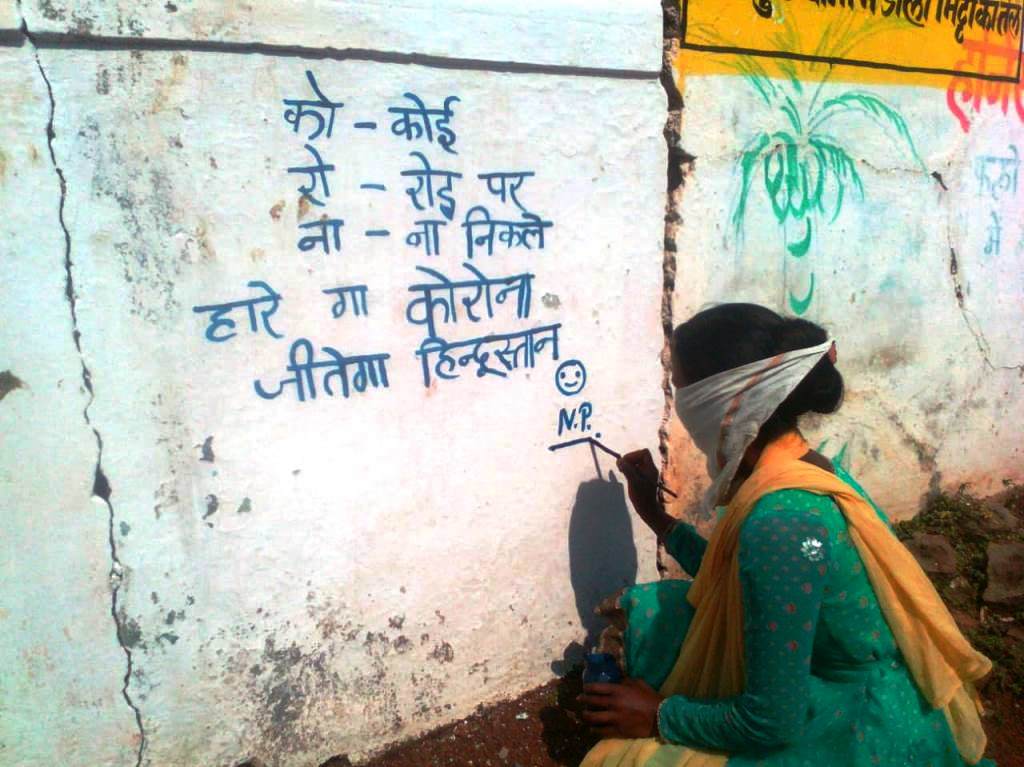 को - कोई
रो - रोड़ पर
ना - ना निकले
हारे गा कोरोना
जीतेगा हिन्दूस्तान
N.P.
में